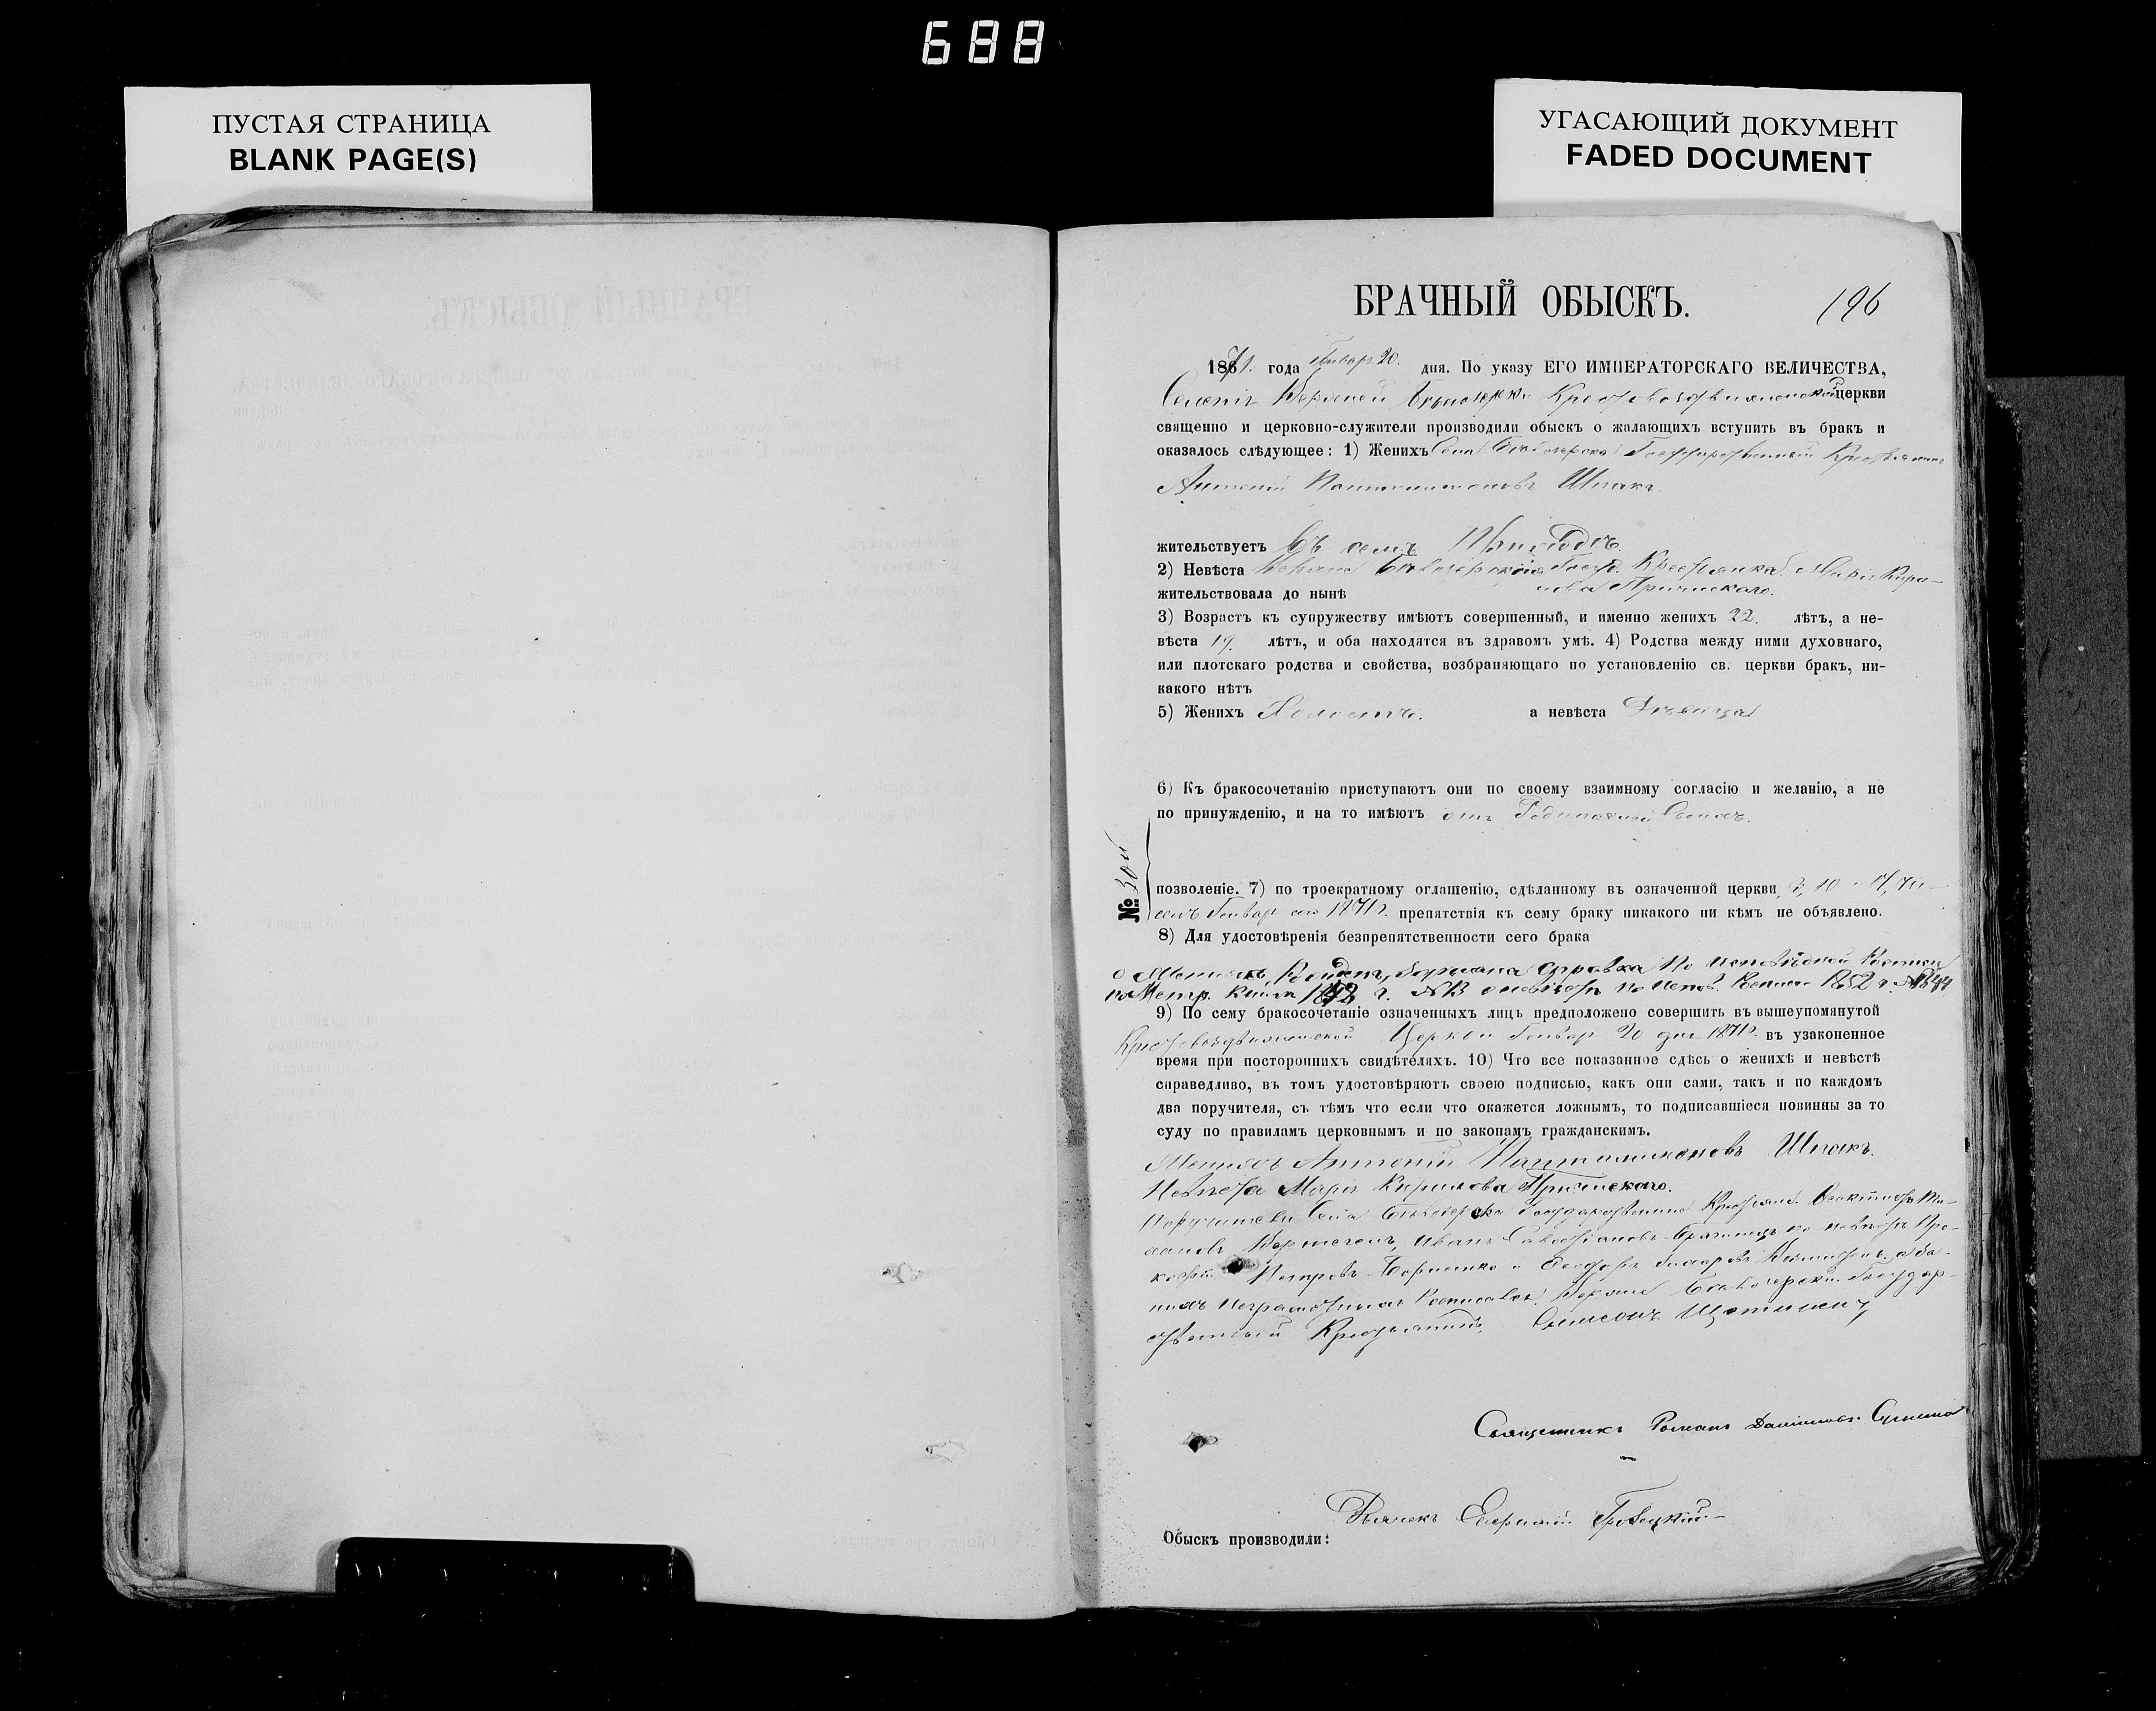 688
ПУСТАЯ СТРАНИЦА
BLANK PAGE(S)
УГАСАЮЩИЙ ДОКУМЕНТ
FADED DOCUMENT
БРАЧНЫЙ ОБЫСКЪ.
196
1871. года Генваря 20. дня. По указу ЕГО ИМПЕРАТОРСКАГО ВЕЛИЧЕСТВА,
Крестовоздвиженской церкви
священно и церковно-служители производили обыскъ о жалающихъ вступить въ бракъ и
оказалось слѣдующее: 1) Женихъ Села Бѣлозерки Государственный Крестьянинъ
Антоній Пантелимоновъ Шпакъ
жительствуетъ въ семъ Приходѣ.
2) Невѣста Госуд. Крестьянка Марія Кири-
лова Притискаго.
жительствовала до нынѣ
3) Возрастъ къ супружеству имѣютъ совершенный, и именно женихъ 22. лѣтъ, а не-
вѣста 19. лѣтъ, и оба находятся въ здравомъ умѣ. 4) Родства между ними духовнаго,
или плотскаго родства и свойства, возбраняющаго по установленію св. церкви бракъ, ни-
какого нѣтъ
5) Женихъ Холостъ. а невѣста Дѣвица
6) Къ бракосочетанію приступаютъ они по своему взаимному согласію и желанію, а не
по принужденію, и на то имѣютъ отъ Родителей Своихъ.
№ 30й
позволеніе. 7) по троекратному оглашенію, сдѣланному въ означенной церкви 3, 10 и 17, чи-
селъ Генваря сего 1871 г. препятствія къ сему браку никакого ни кѣмъ не объявлено.
8) Для удостовѣренія безпрепятственности сего брака
о Женихѣ справка по исповѣдной Росписи
по Метр. Книгѣ г. № 13 о невѣстѣ по испов. Росписи 1852 г.
9) По сему бракосочетаніе означенныхъ лицъ предположено совершить въ вышеупомянутой
Крестовоздвиженской Церкви Генваря 20 дня 1871 г. въ узаконенное
время при постороннихъ свидѣтеляхъ. 10) Что все показанное сдѣсь о женихѣ и невѣстѣ
справедливо, въ томъ удостовѣряютъ своею подписью, какъ они сами, такъ и по каждомъ
два поручителя, съ тѣмъ что если что окажется ложнымъ, то подписавшіеся повинны за то
суду по правиламъ церковнымъ и по законамъ гражданскимъ.
Женихъ Антоній Пантелимоновъ Шпакъ.
Невѣста Марія Кирилова Притискаго.
Поручители Села Бѣлозерки Государственные Крестьяне
Иванъ по невѣстѣ Про-
кофій Петровъ Борисенко и Ѳеодоръ а за
нихъ неграмотныхъ Росписался Государ-
ственный Крестьянинъ Симеонъ
Священникъ Романъ Даниловъ
Дьячекъ Евфимій
Обыскъ производили: